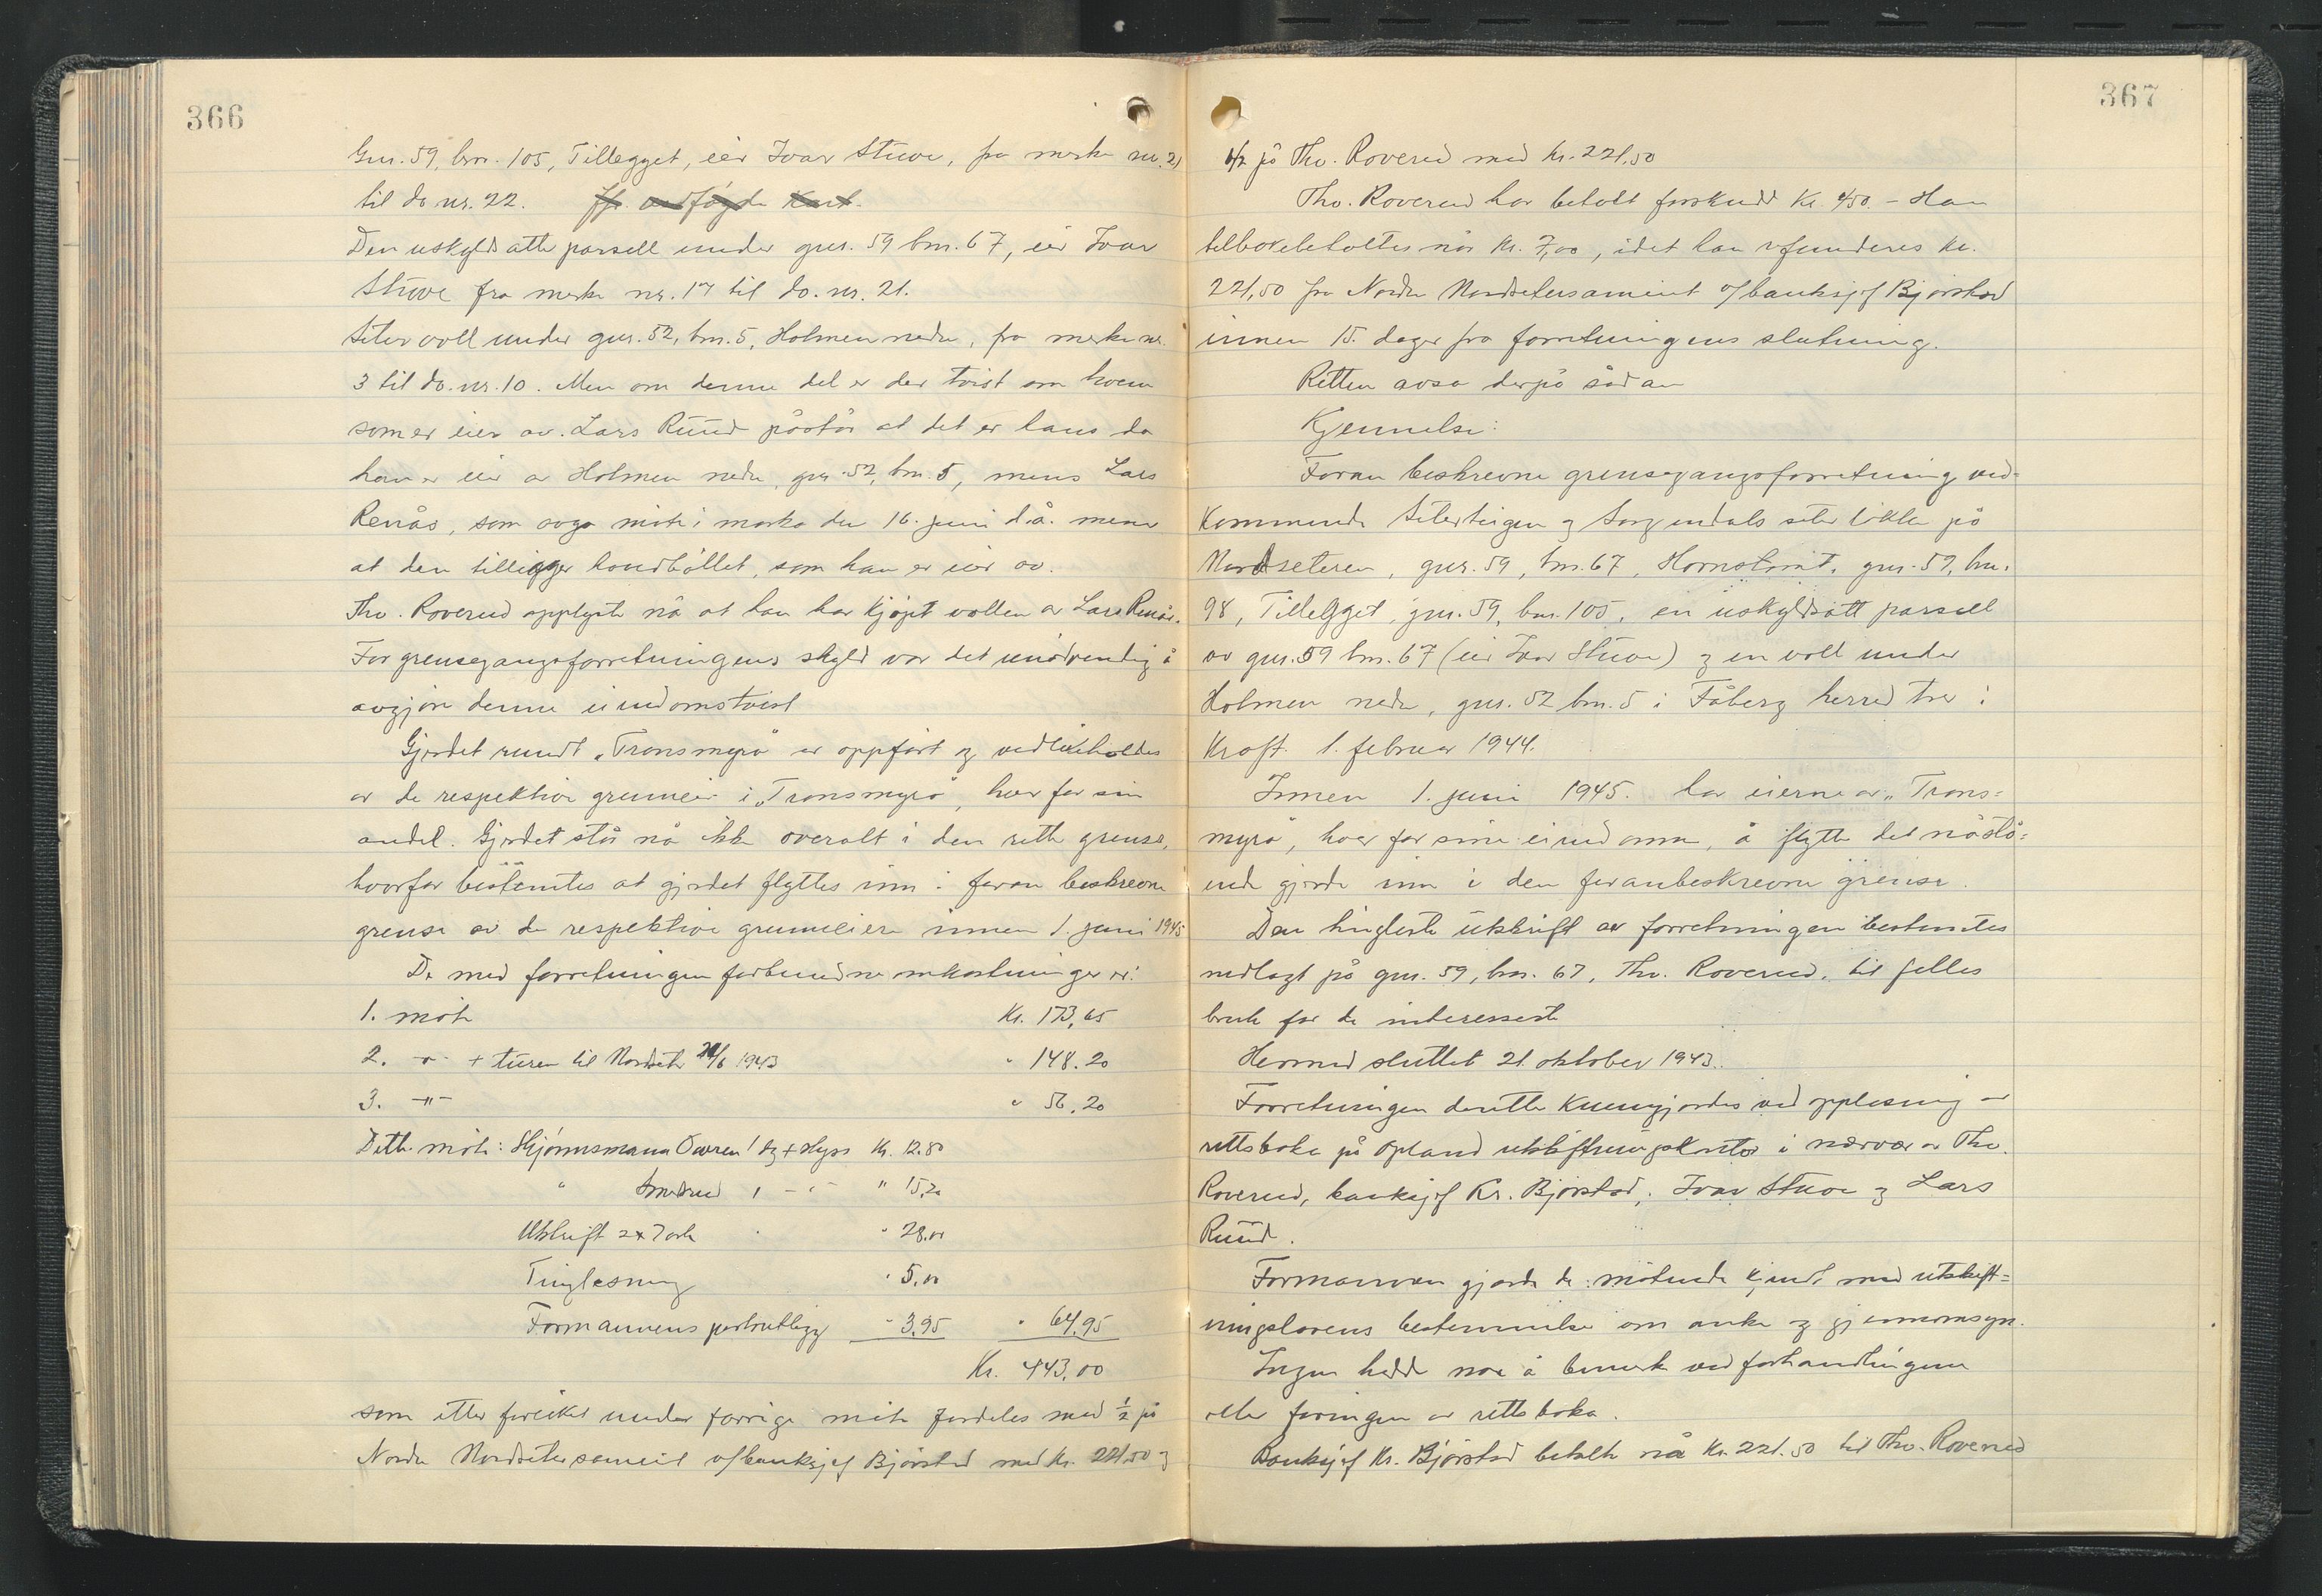 366
Gnr. 59, bnr. 105, Tillegget, eier Ivar Stuve, fra merke nr. 21
til do nr. 22. Jfr. vedføyde Kart.
Den uskyldsatte parsell under gnr. 59 bnr. 67, eier Ivar
Stuve fra merke nr. 17 til do. nr. 21.
Setervoll under gnr. 52, bnr. 5, Holmen nedre, fra merke nr.
3 til do. nr. 10. Men om denne del er der tvist om hvem
som er eier av. Lars Ruud påstår at det er hans da
han er eier av Holmen nedre, gnr. 52, bnr. 5, mens Lars
Renås, som avga møte i marka den 16. juni d.å. mener
at den tilligger landbøllet, som han er eier av.
Thv. Roverud opplyste nå at han har kjøpt vollen av Lars Renås.
For grensegangsforretningens skyld var det unødvendig å
avgjøre denne eiendomstvist
Gjerdet rundt „Transmyra" er oppført og vedlikeholdes
av de respektive grunneier i „Transmyra", hver for sin
andel. Gjerdet står nå ikke overalt i den rette grense,
hvorfor bestemtes at gjerdet flyttes inn i foran beskrevne
grense av de respektive grunneiere innen 1. juni 1945
De med forretningen forbundne omkostninger er:
1. møte Kr. 173,65
2. -"- + turen til Nordseter /6 1943 " 148.20
3. -"- " 56,20
Dette møte: Skjønnsmann Owren 1 dg + skyss Kr. 12.80
" Smedsrud 1 - " - " 15,20
Utskrift 2 x 7 ark " 28.00
Tinglesning " 5,00
Formannens portoutlegg " 3,95 " 64,95
Kr. 443,00
som etter foreiket under forrige møte fordeles med 1/2 på
Nordre Nordsetersameie v/banksjef Bjørstad med Kr. 221.50 og
367
1/2 på Thv. Roverud med Kr. 221,50
Thv. Roverud har betalt forskudd Kr. 450. - Han
tilbakebetaltes nå Kr. 7,00, idet han refunderes Kr.
221,50 fra Nordre Nordsetersameiet v/banksjef Bjørstad
innen 15. dager fra forretningens slutning.
Retten avsa derpå sådan
Kjennelse:
Foran beskrevne grensegangsforretning ved-
kommende Seterteigen og Sorgendals seterløkke på
Nordseteren, gnr. 59, bnr. 67, Hornstvedt, gnr. 59, bnr.
98, Tillegget, gnr. 59, bnr. 105, en uskyldsatt parsell
av gnr. 59 bnr. 67 (eier Ivar Stuve) og en voll under
Holmen nedre, gnr. 52 bnr. 5 i Fåberg herred trer i
Kraft 1. februar 1944.
Innen 1. juni 1945. har eierne av „Trans=
myra", hver for sine eiendomme, å flytte det nåstå=
ende gjerde inn i den foranbeskrevne grense.
Den tingleste utskrift av forretningen bestemtes
nedlagt på gnr. 59, bnr. 67, Thv. Roverud, til felles
bruk for de interesserte
Hermed sluttet 21. oktober 1943.
Forretningen deretter kunngjordes ved opplesning av
rettsboka på Opland utskiftningskontor i nærvær av Thv.
Roverud, banksjef Kr. Bjørstad, Ivar Stuve og Lars
Ruud.
Formannen gjorde de møtende kjendt med utskift=
ningslovens bestemmelse om anke og gjennomsyn.
Ingen hadde noe å bemerke ved forhandlingene
eller føringen av rettsboka.
Banksjef Kr. Bjørstad betalte nå Kr. 221.50 til Thv. Roverud